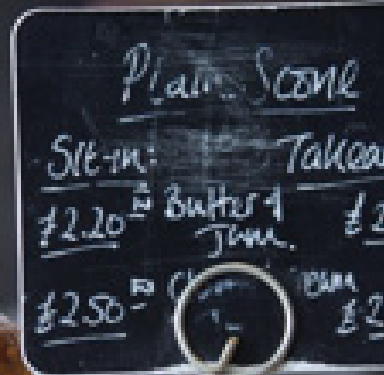 Plain Scone
Sit-in: Takea
£2.20 Butter & £2
Jam.
£2.50 £2